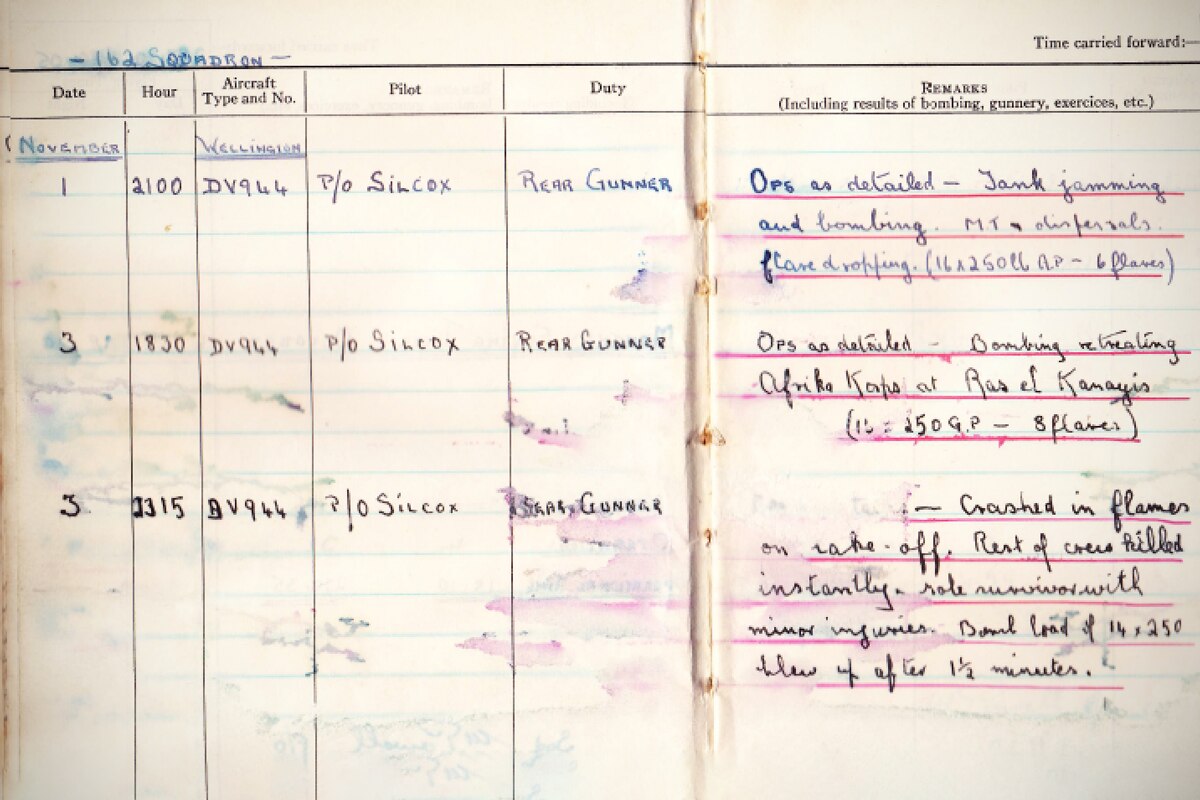 - 162 SQUADRON -
Time carried forward:-
Date Hour Aircraft Type and No. Pilot Duty REMARKS
(Including results of bombing, gunnery, exercices, etc.)
NOVEMBER WELLINGTON
1 2100 DV944 P/O SILCOX REAR GUNNER Ops as detailed - Tank jamming
and bombing. M.T. dispersals.
flare dropping. (16x250lb G.P - 6 flares)
3 1830 DV944 P/O SILCOX REAR GUNNER Ops as detailed - Bombing retreating
Afrika Korps at Ras el Kanayis
250 G.P - 8 flares)
3 2315 DV944 P/O SILCOX REAR GUNNER - Crashed in flames
on take-off. Rest of crew killed
instantly. sole survivor with
minor injuries. Bomb load of 14 x 250
blew up after 1½ minutes.